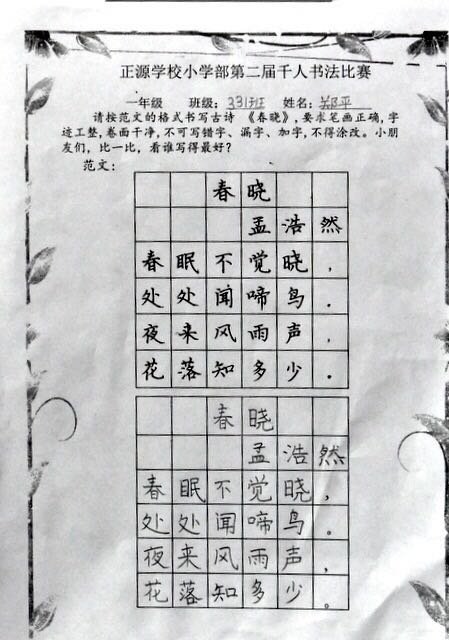 正源学校小学部第二届千人书法比赛
一年级 班级：331班 姓名：郑平
请按范文的格式书写古诗《春晓》，要求笔画正确，字
迹工整，卷面干净，不可写错字、漏字、加字，不得涂改。小朋
友们，比一比，看谁写得最好？
范文：
春晓
孟浩然
春眠不觉晓，
处处闻啼鸟．
夜来风雨声，
花落知多少．
春晓
孟浩然
春眠不觉晓，
处处闻啼鸟。
夜来风雨声，
花落知多少。